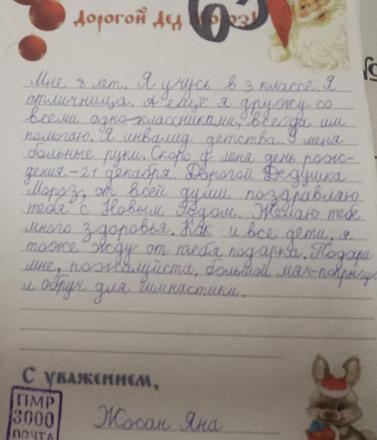 Дорогой Дед Мороз!
63
Мне 8 лет. Я учусь в 3 классе. Я
отличница. А ещё я дружу со
всеми одноклассниками, всегда им
помогаю. Я инвалид детства. У меня
больные руки. Скоро у меня день рож-
дения - 21 декабря. Дорогой Дедушка
Мороз, от всей души поздравляю
тебя с Новым Годом. Желаю тебе
много здоровья. Как и все дети, я
тоже жду от тебя подарка. Подари
мне, пожалуйста, большой мяч-попрыгун
и обруч для гимнастики.
С уважением,
ПМР
3000
ПОЧТА
Жосан Яна